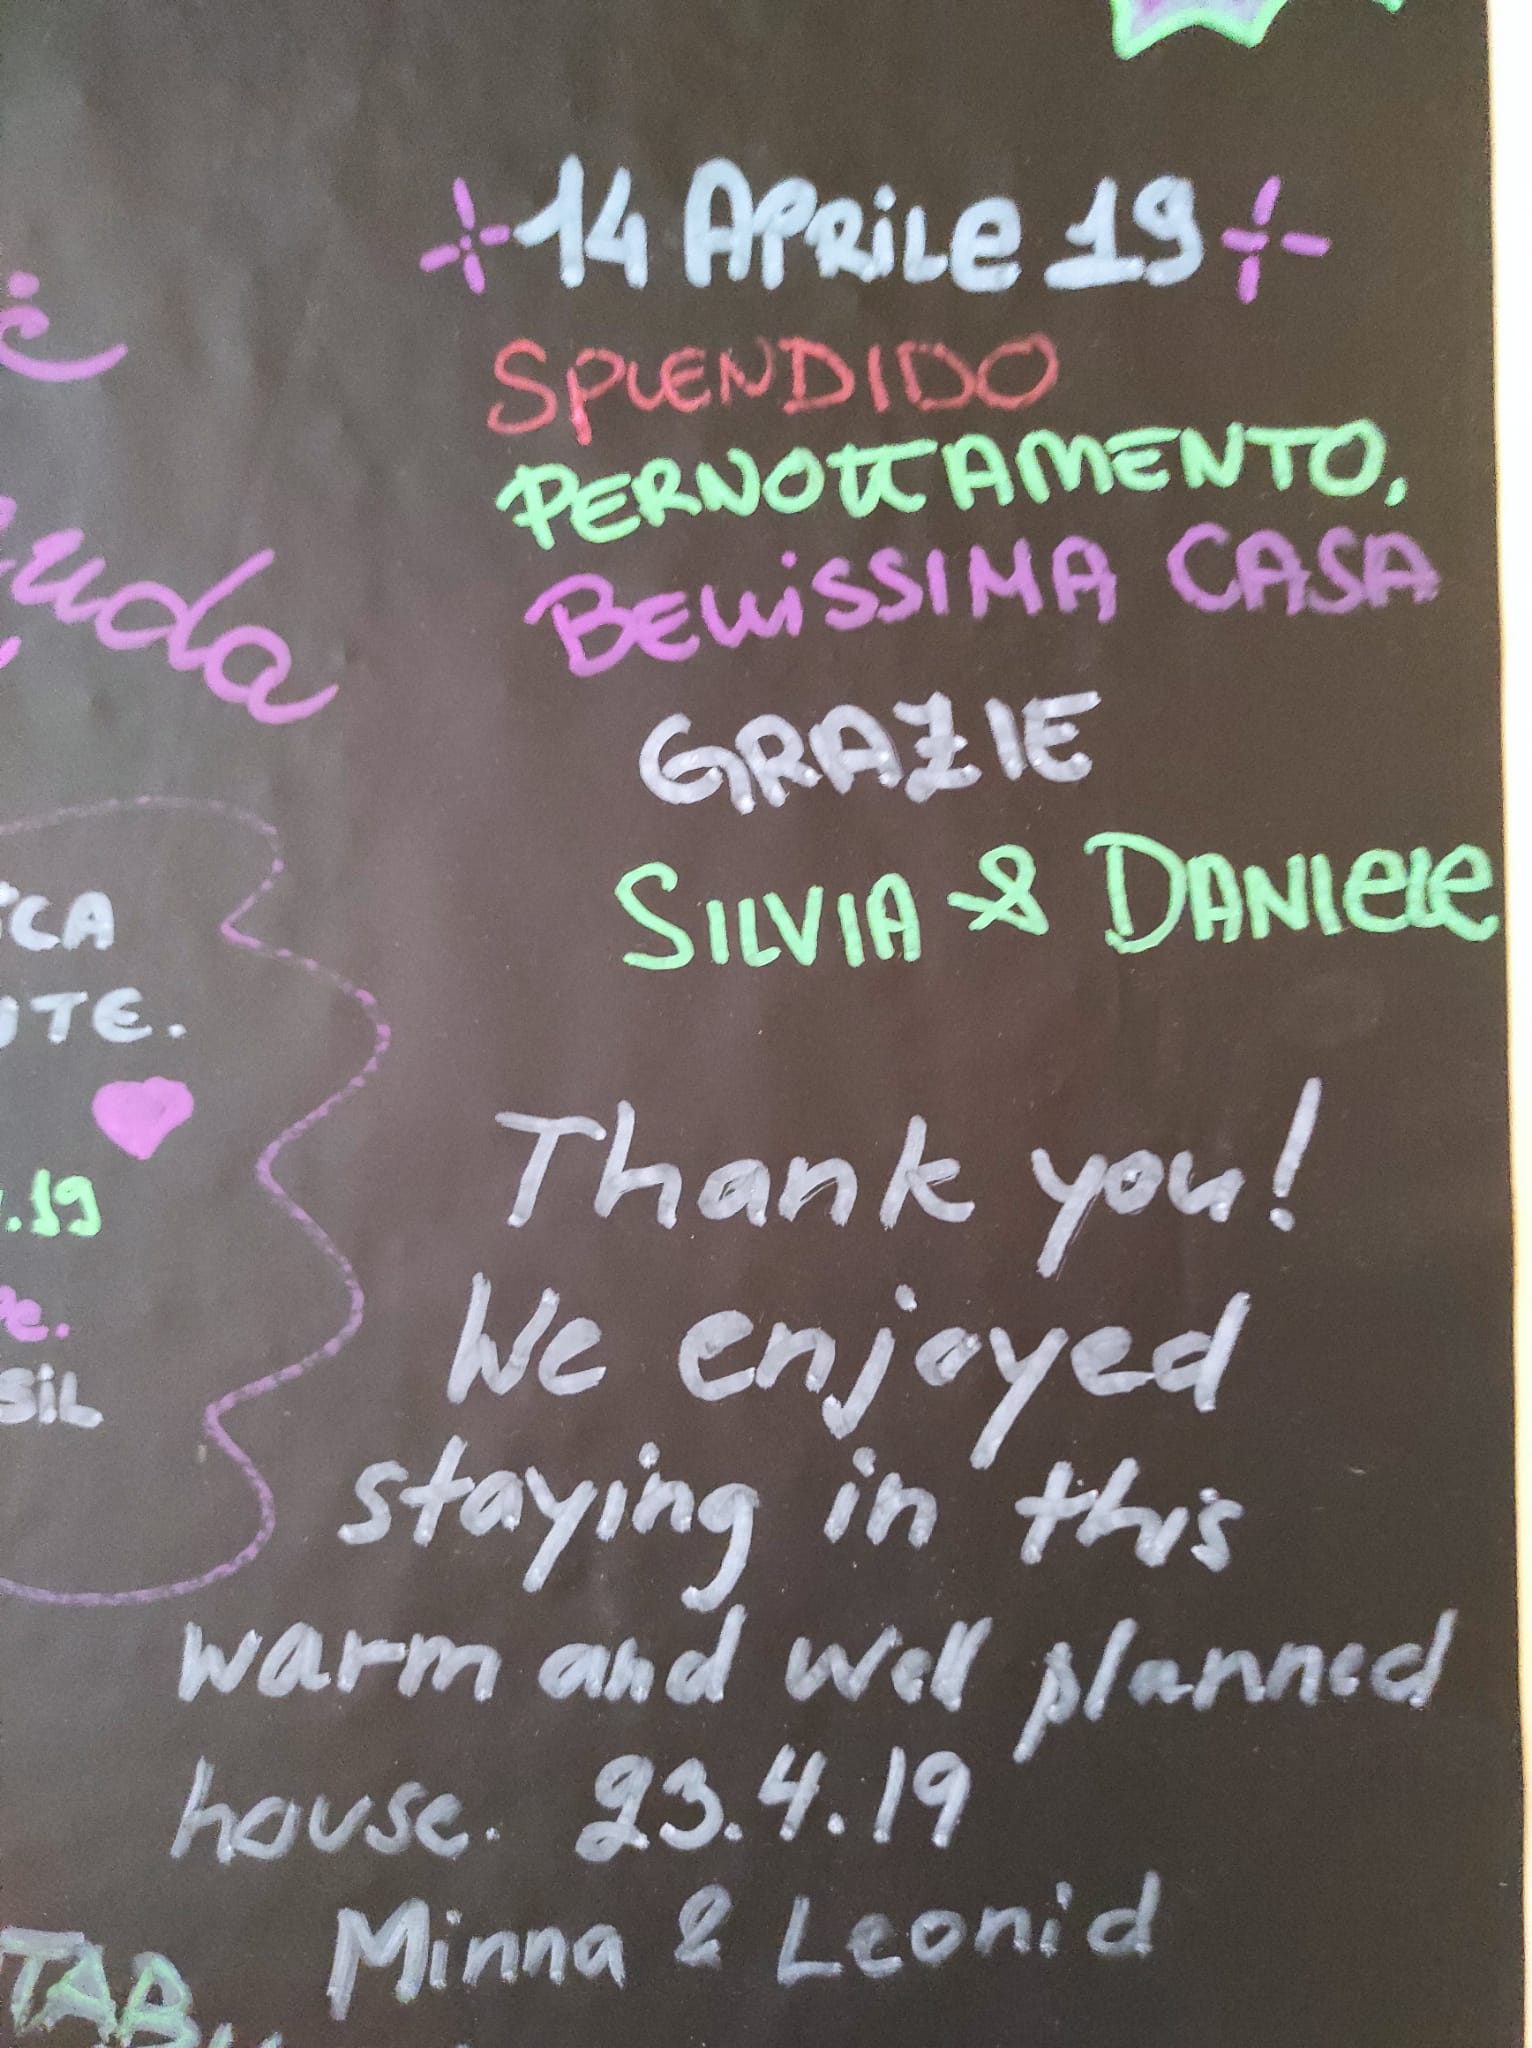 14 APRILE 19
SPLENDIDO
PERNOTTAMENTO,
BELLISSIMA CASA
GRAZIE
SILVIA & DANIELE
Thank you!
We enjoyed
staying in this
warm and well planned
house. 23.4.19
Minna & Leonid
.19